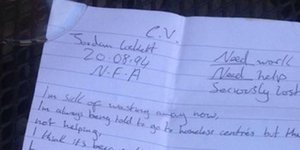 C.V.
Jordan
20.08.94
N.F.A
Need work
Need help
Seriously lost
I'm sick of wasting away now,
I'm always being told to go to homeless centres but the
not helping.
I think it's